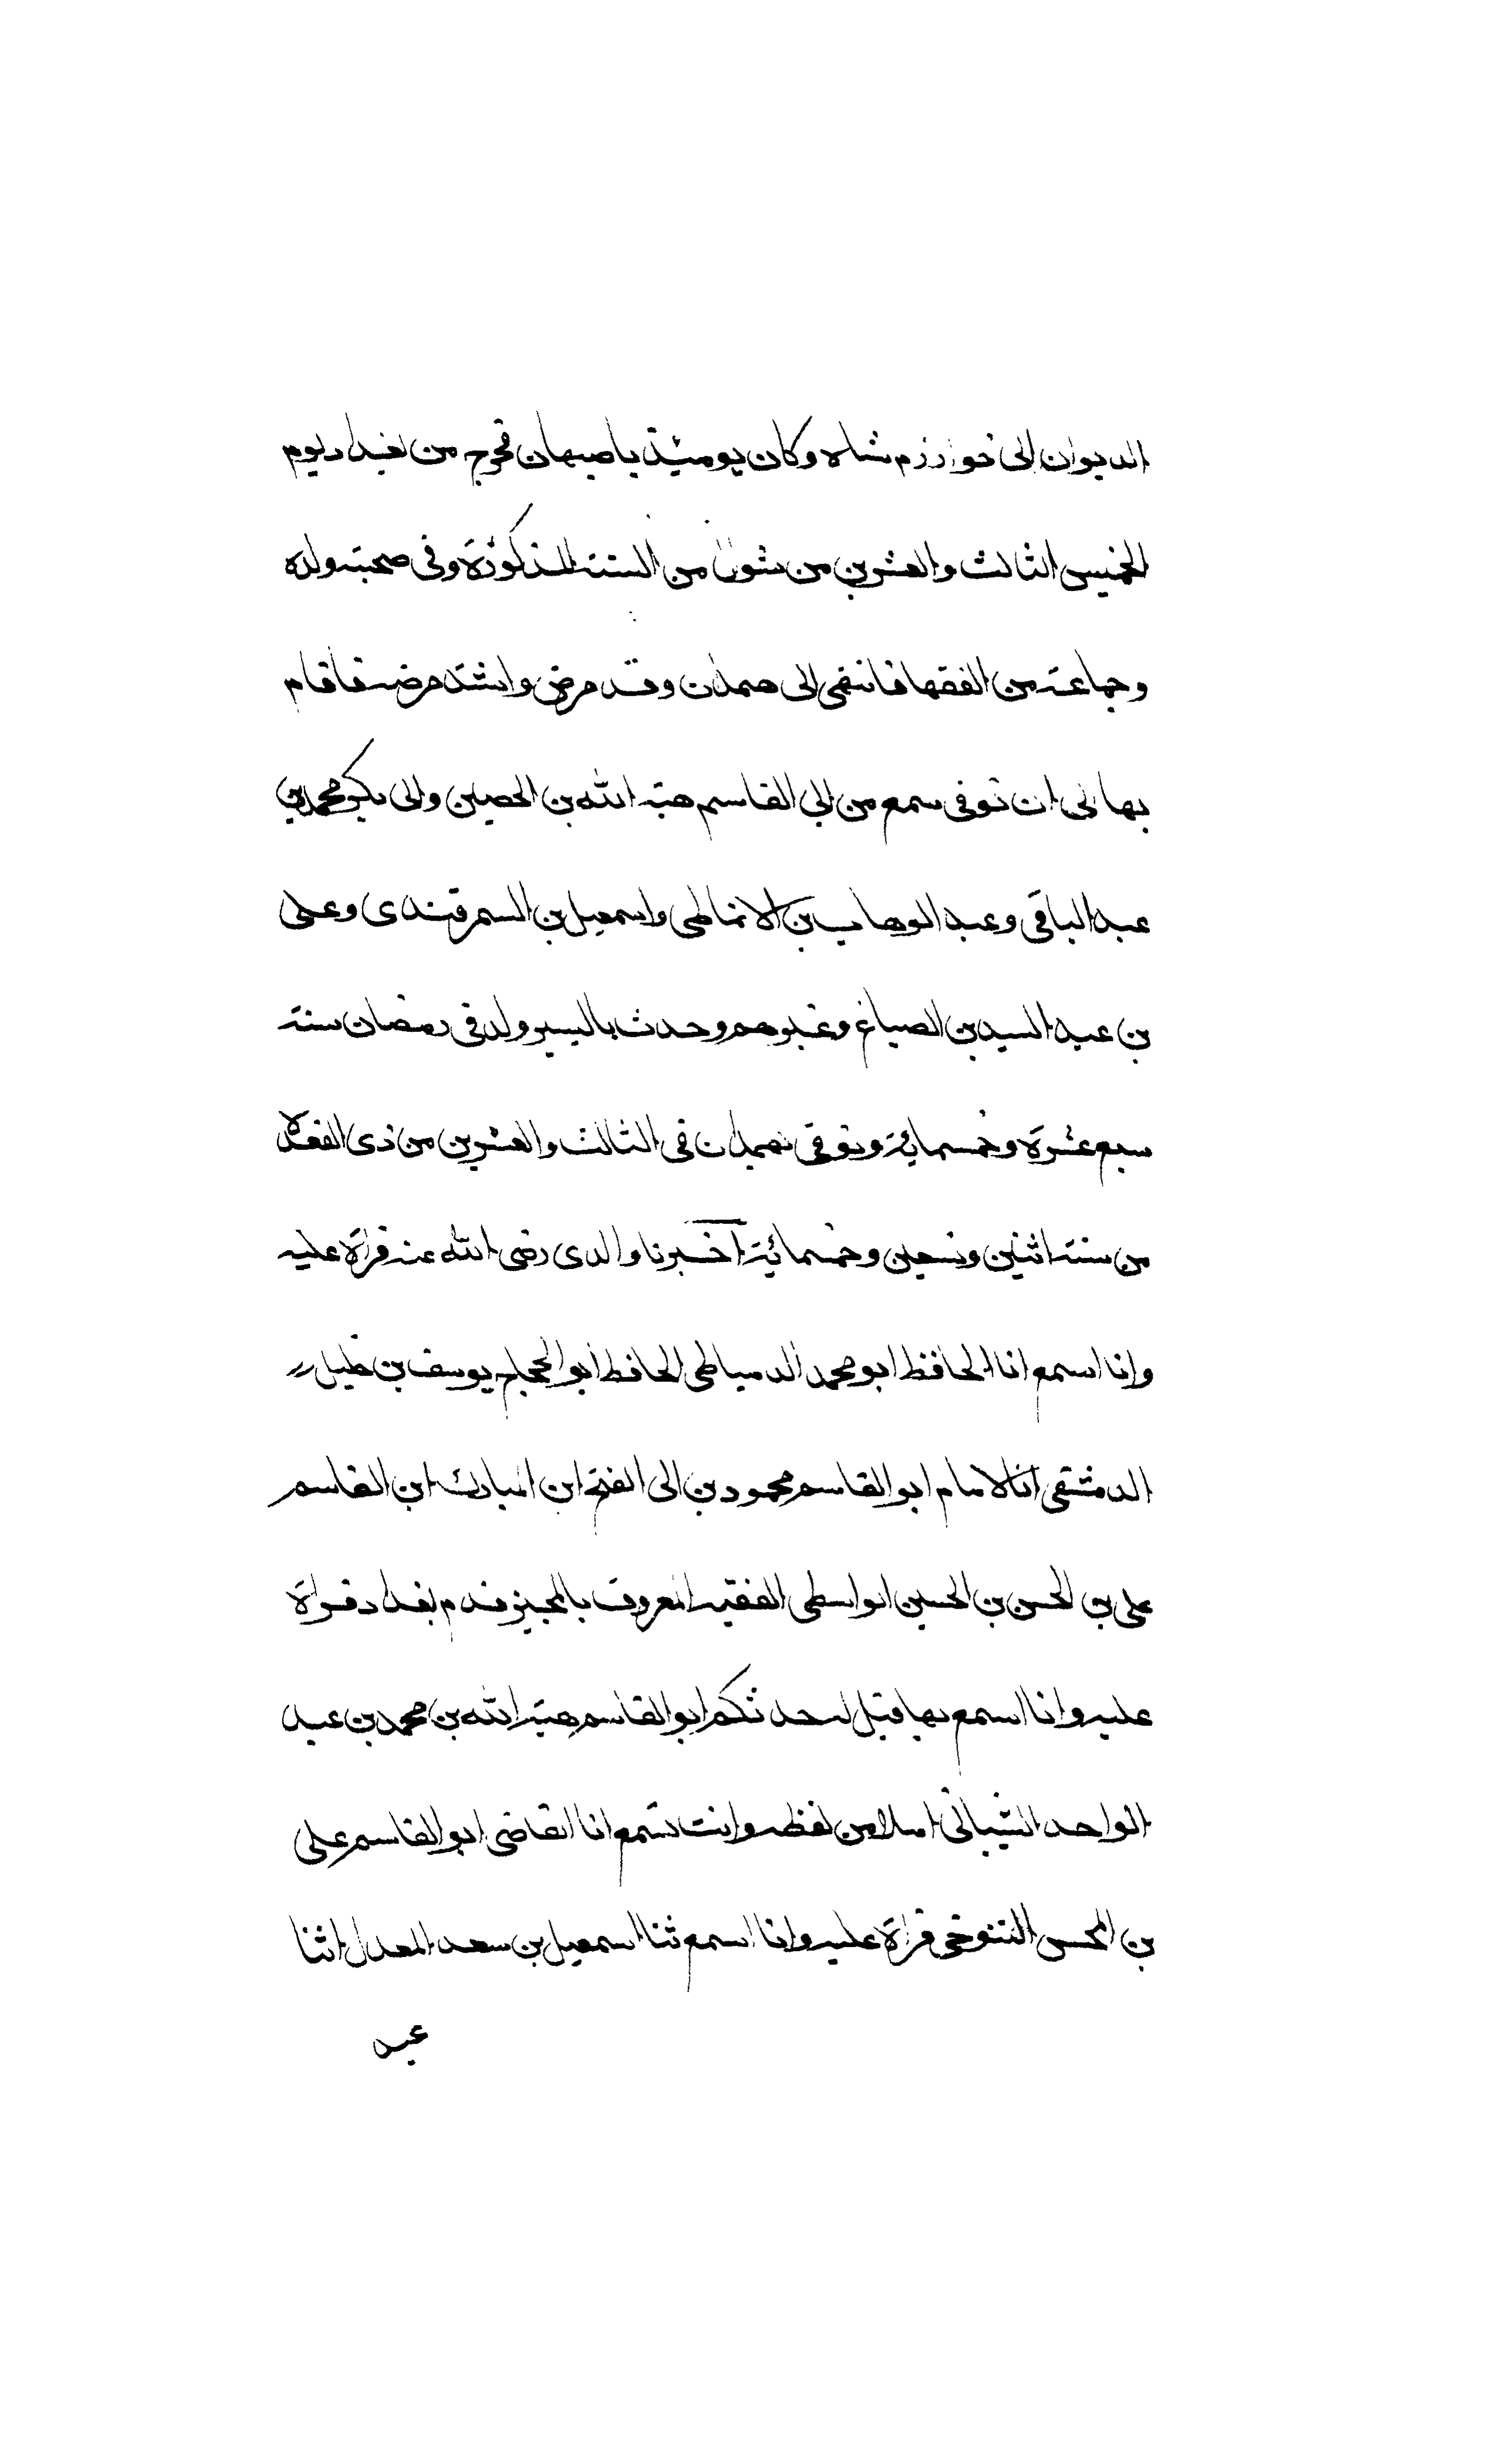 الديوان الى خوارزم شاه وكان يومئذ باصبهان فخرج من بغداد يوم
الخميس الثالث والعشرين من شوال من السنة المذكورة وفى صحبته ولده
وجماعة من الفقها فانتهى الى همدان وقد مرض واشتد مرضه فاقام
بها الى ان توفى سمع من ابي القاسم هبة الله بن الحصين وابى بكر محمد بن
عبد الباقى وعبد الوهاب بن الانماطى واسمعيل بن السمرقندى وعلى
بن عبد السيد بن الصباغ وغيرهم وحدث باليسير ولد فى رمضان سنة
سبع عشرة وخمسمائة وتوفى بهمدان فى الثالث والعشرين من ذى القعدة
من سنة اثنين وتسعين وخمسمائة اخبرنا والدى رضى الله عنه قراة عليه
وانا اسمع انا الحافظ ابو محمد الدمياطى الحافظ ابو الحجاج يوسف بن خليل
الدمشقى انا الامام ابو القاسم محمود بن ابى الفتح ابن المبارك ابن القاسم
على بن الحسن بن الحسين الواسطى الفقيه المعروف بالمجيز قدم بغداد قراة
عليه وانا اسمع بها قيل له حدثكم ابو القاسم هبة الله بن محمد بن عبد
الواحد الشيبانى املا من لفظه وانت تسمع انا القاضى ابو القاسم على
بن المحسن التنوخى قراة عليه وانا اسمع ثنا اسمعيل بن سعد المعدل اثنا
عبد